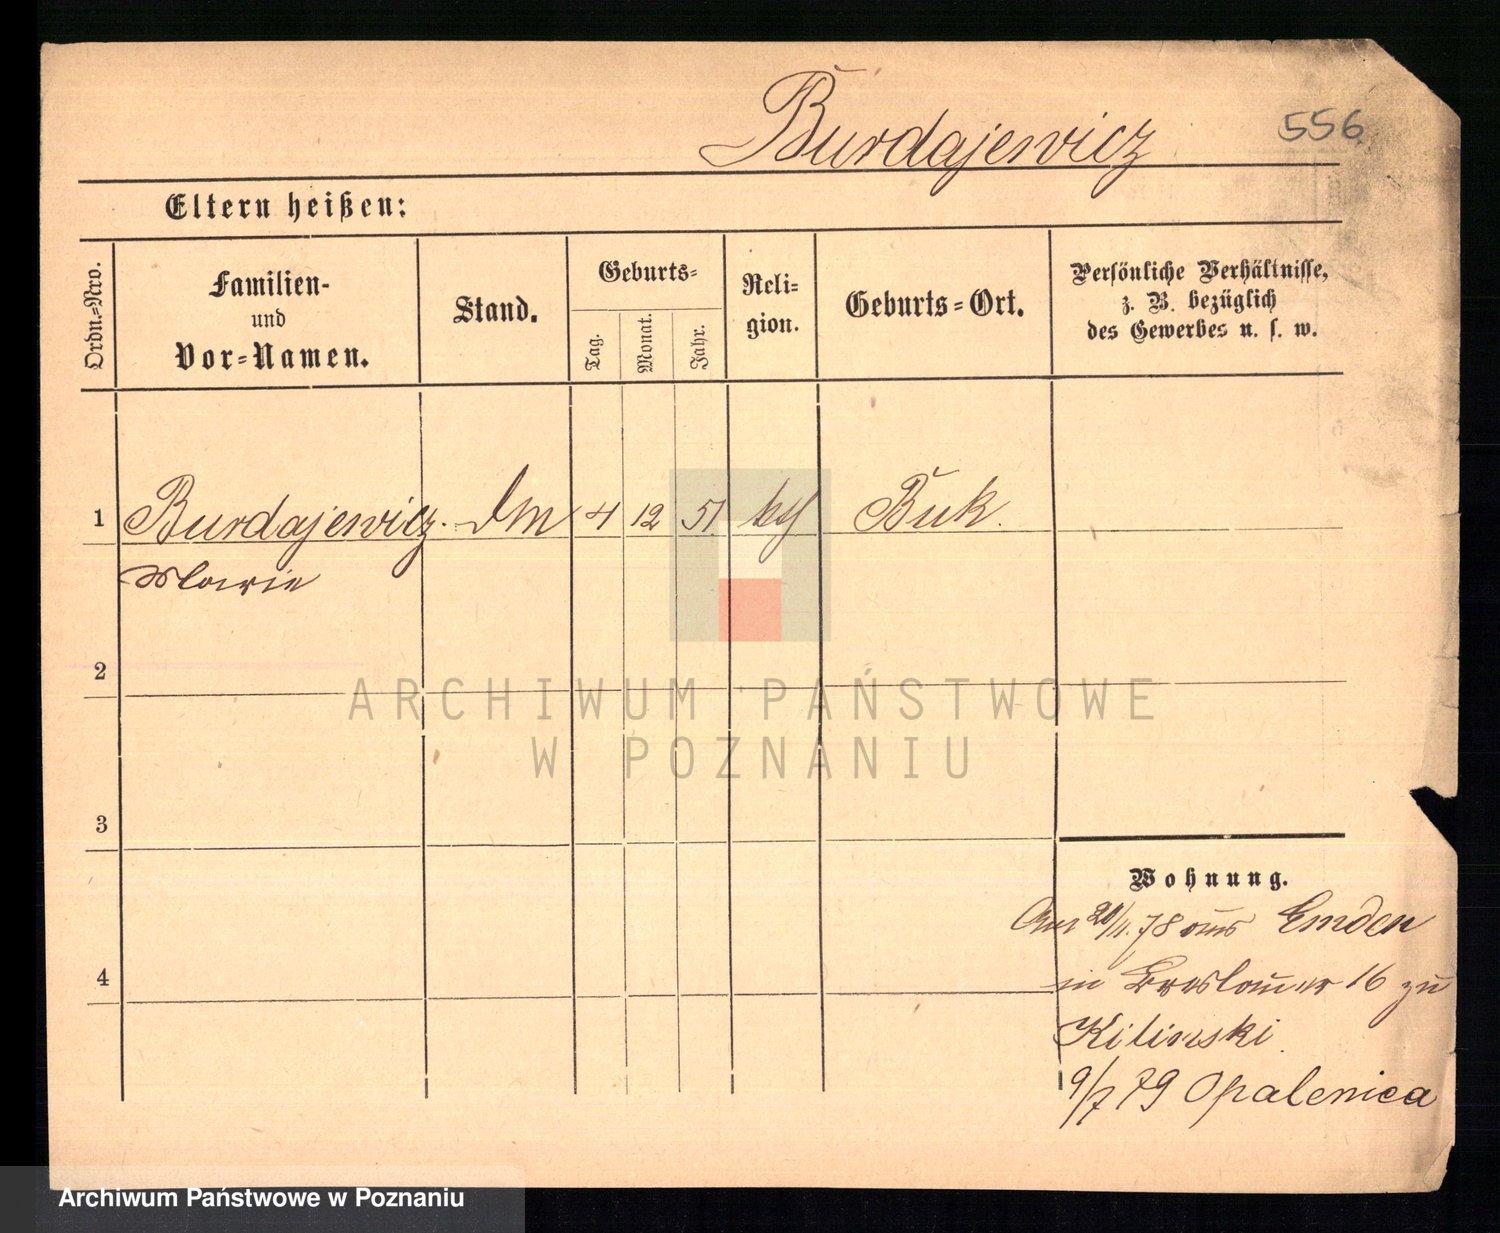 Burdajewicz
556
Eltern heißen:
Ordn.-Nro.
Familien-
und
Vor-Namen.
Stand.
Geburts-
Tag.
Monat.
Jahr.
Reli-
gion.
Geburts-Ort.
Persönliche Verhältnisse,
z. B. bezüglich
des Gewerbes u. s. w.
1 Burdajewicz. 4 12 51 Buk.
Marie
2
ARCHIWUM PAŃSTWOWE
W POZNANIU
3
Wohnung.
20/11.78 aus Emden
4
in Breslauer 16 zu
Kilinski
9/7 79 Opalenica
Archiwum Państwowe w Poznaniu